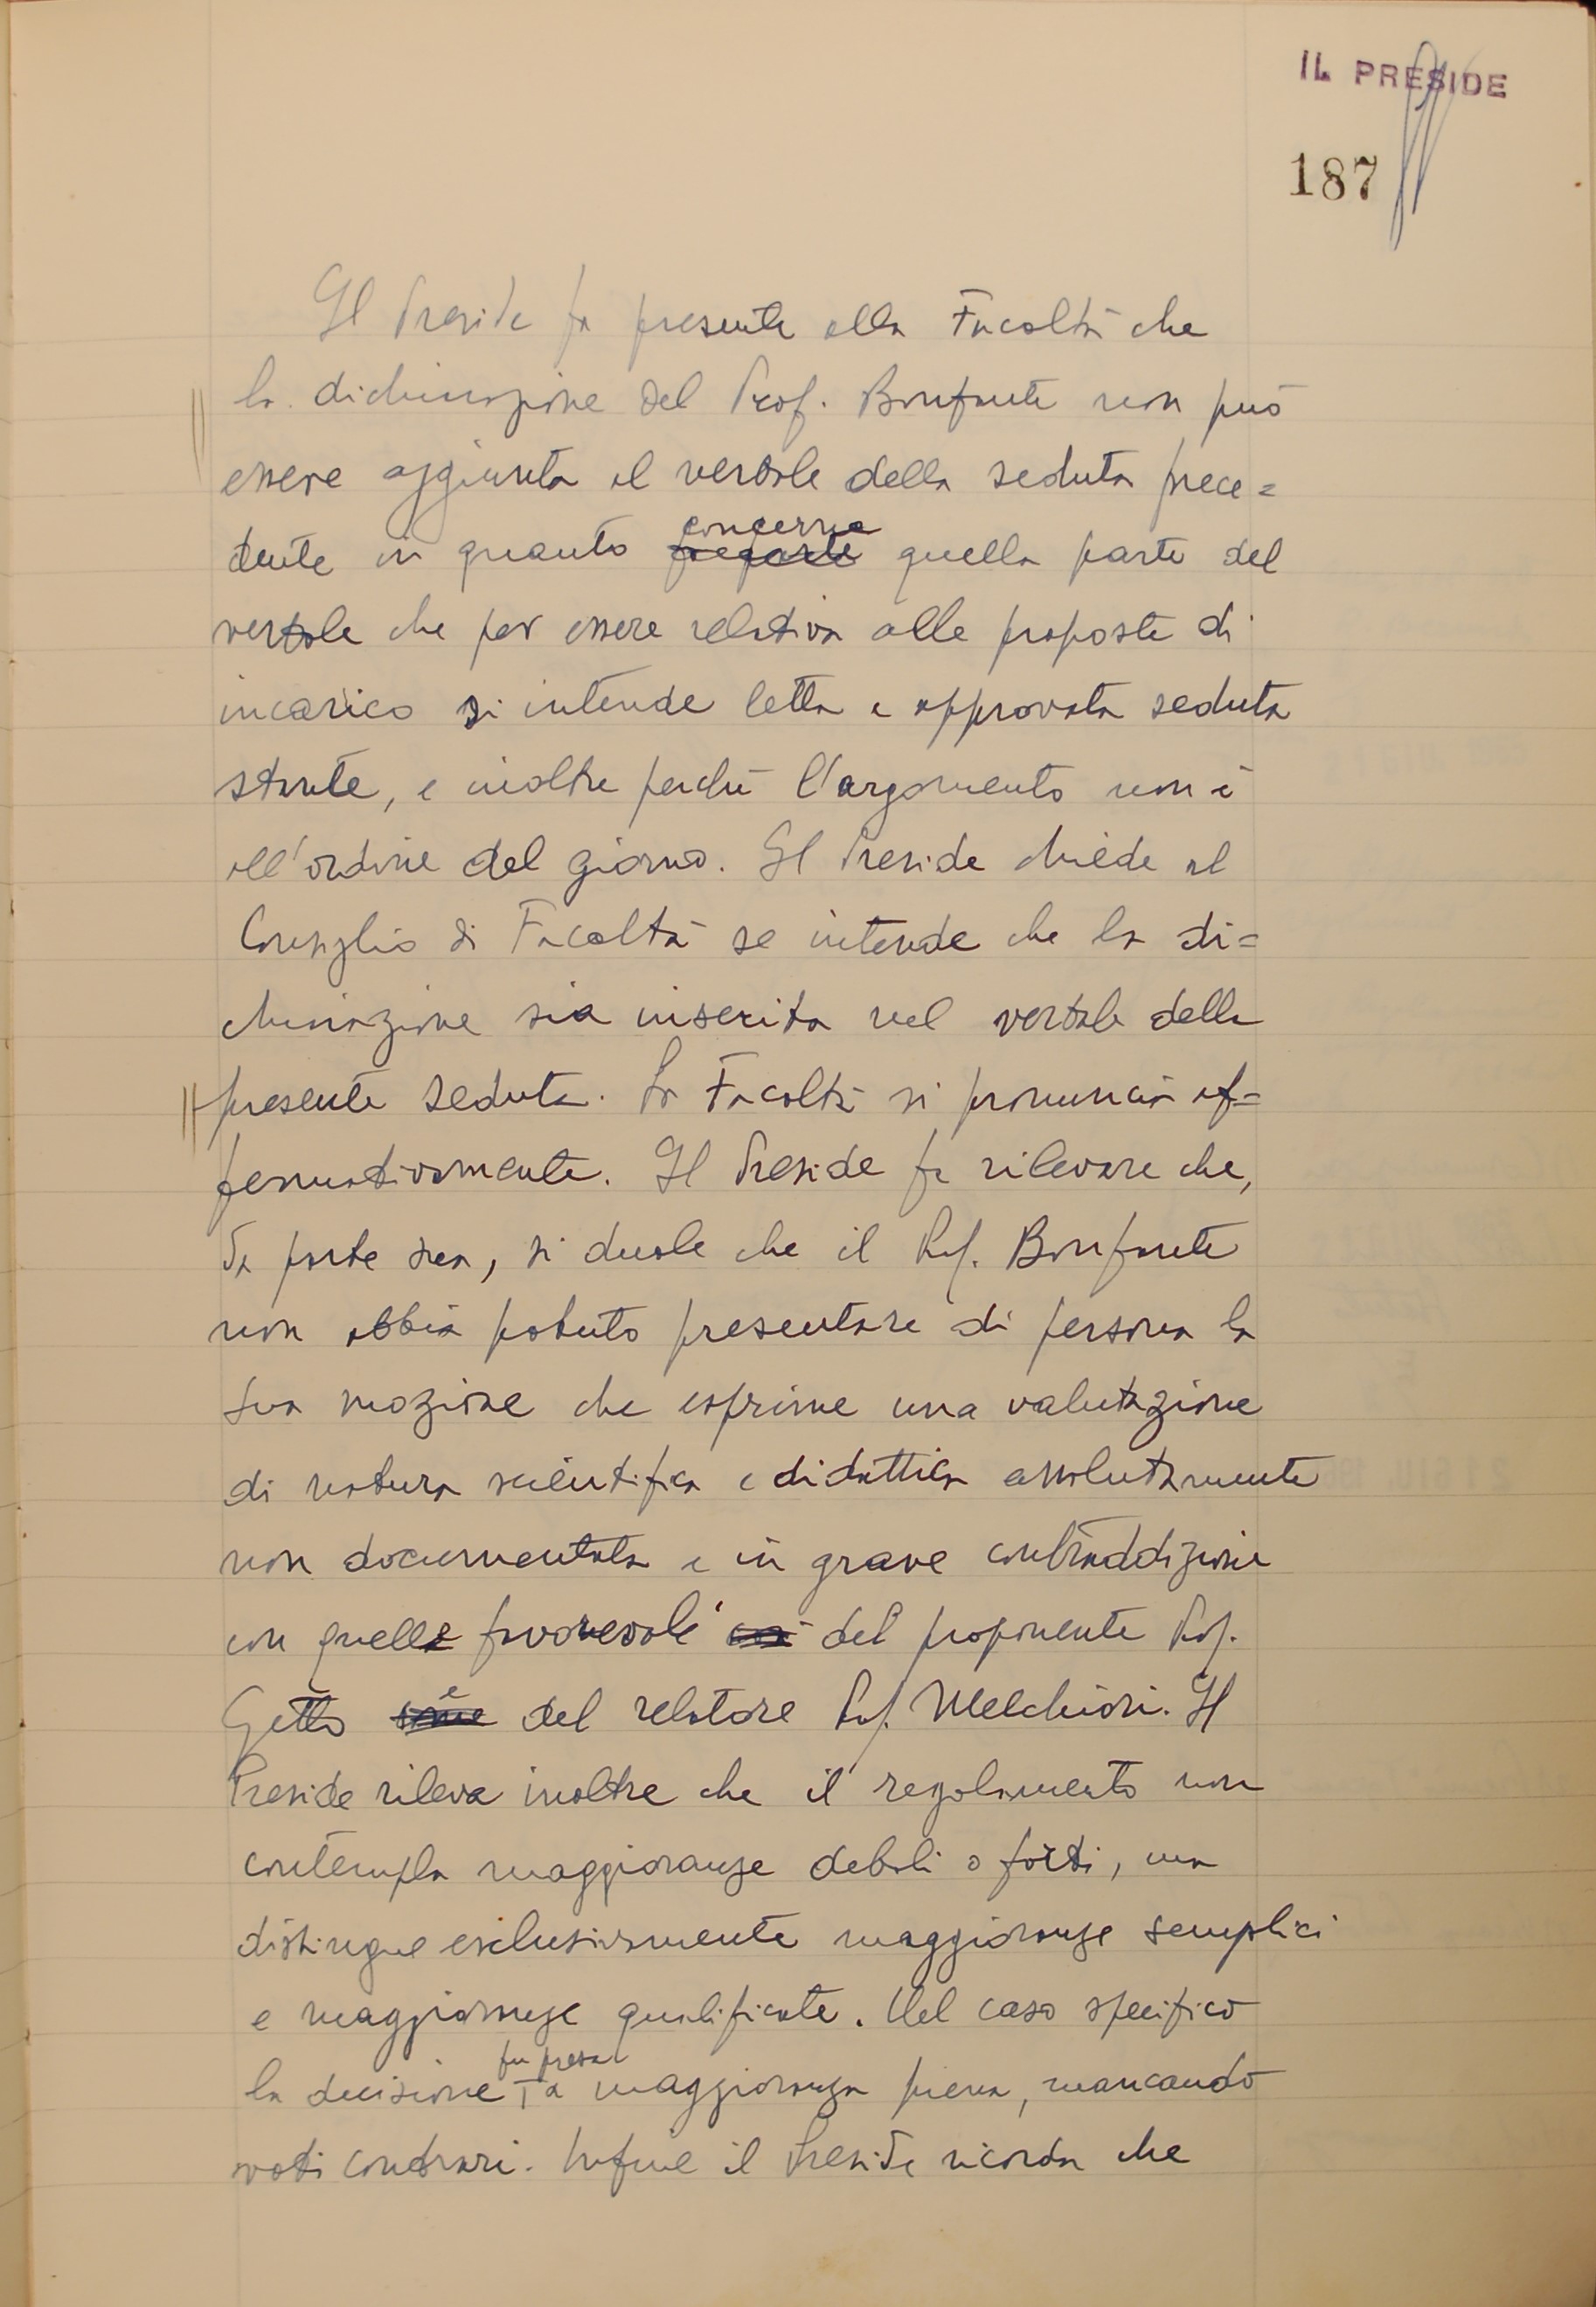 IL PRESIDE
187
Il Preside fa presente alla Facoltà che
la dichiarazione del Prof. Bonfante non può
essere aggiunta al verbale della seduta prece=
dente in quanto concerne quella parte del
verbale che per essere relativa alle proposte di
incarico si intende letta e approvata seduta
stante, e inoltre perchè l'argomento non è
all'ordine del giorno. Il Preside chiede al
Consiglio di Facoltà se intende che la di=
chiarazione sia inserita nel verbale della
presente seduta. La Facoltà si pronuncia af=
fermativamente. Il Preside fa rilevare che,
da parte sua, si duole che il Prof. Bonfante
non abbia potuto presentare di persona la
sua mozione che esprime una valutazione
di natura scientifica e didattica assolutamente
non documentata e in grave contraddizione
con quelle favorevoli del proponente Prof.
Getto e del relatore Prof. Melchiori. Il
Preside rileva inoltre che il regolamento non
contempla maggioranze deboli o forti, ma
distingue esclusivamente maggioranze semplici
e maggioranze qualificate. Nel caso specifico
la decisione fu presa a maggioranza piena, mancando
voti contrari. Infine il Preside ricorda che